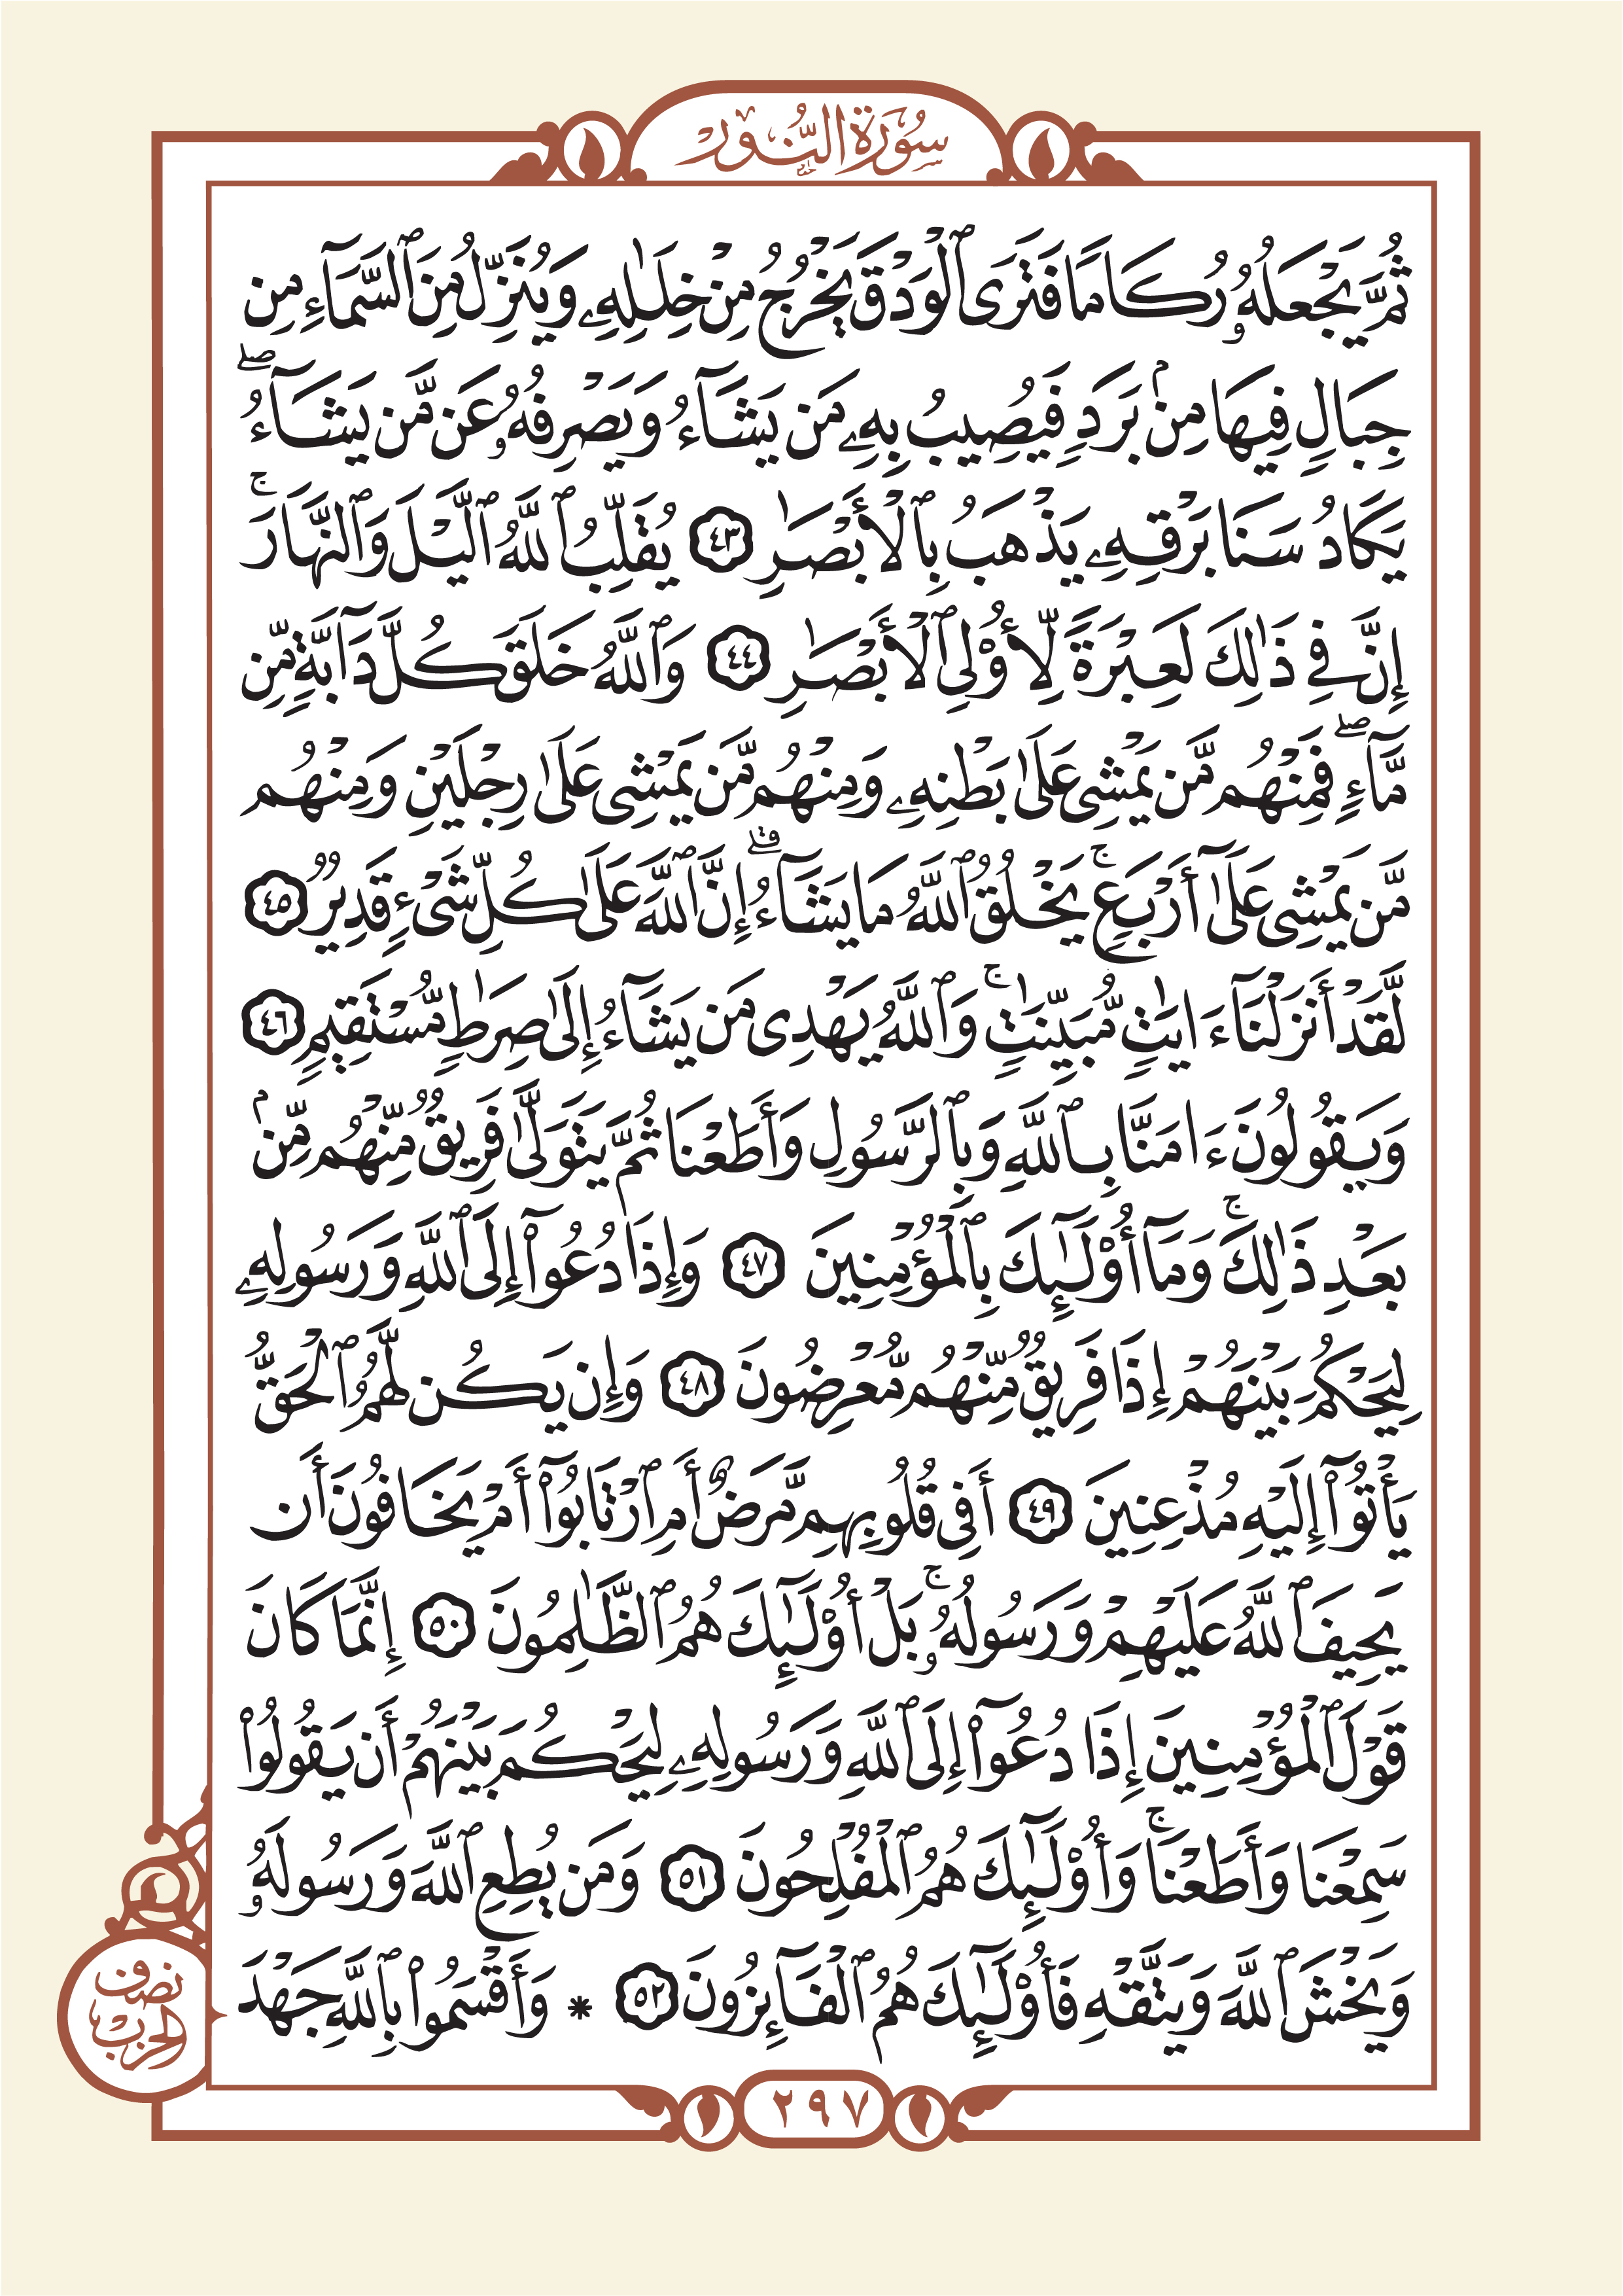 سُورَةُ النُّورِ
ثُمَّ يَجْعَلُهُۥ رُكَامًا فَتَرَى ٱلْوَدْقَ يَخْرُجُ مِنْ خِلَٰلِهِۦ وَيُنَزِّلُ مِنَ ٱلسَّمَآءِ مِن
جِبَالٍ فِيهَا مِنۢ بَرَدٍ فَيُصِيبُ بِهِۦ مَن يَشَآءُ وَيَصْرِفُهُۥ عَن مَّن يَشَآءُۖ
يَكَادُ سَنَا بَرْقِهِۦ يَذْهَبُ بِٱلْأَبْصَٰرِ ٤٣ يُقَلِّبُ ٱللَّهُ ٱلَّيْلَ وَٱلنَّهَارَۚ
إِنَّ فِي ذَٰلِكَ لَعِبْرَةً لِّأُوْلِي ٱلْأَبْصَٰرِ ٤٤ وَٱللَّهُ خَلَقَ كُلَّ دَآبَّةٍ مِّن
مَّآءٍۖ فَمِنْهُم مَّن يَمْشِي عَلَىٰ بَطْنِهِۦ وَمِنْهُم مَّن يَمْشِي عَلَىٰ رِجْلَيْنِ وَمِنْهُم
مَّن يَمْشِي عَلَىٰٓ أَرْبَعٍۚ يَخْلُقُ ٱللَّهُ مَا يَشَآءُۗ إِنَّ ٱللَّهَ عَلَىٰ كُلِّ شَيْءٍ قَدِيرٌ ٤٥
لَّقَدْ أَنزَلْنَآ ءَايَٰتٍ مُّبَيِّنَٰتٍۚ وَٱللَّهُ يَهْدِي مَن يَشَآءُ إِلَىٰ صِرَٰطٍ مُّسْتَقِيمٍ ٤٦
وَيَقُولُونَ ءَامَنَّا بِٱللَّهِ وَبِٱلرَّسُولِ وَأَطَعْنَا ثُمَّ يَتَوَلَّىٰ فَرِيقٌ مِّنْهُم مِّنۢ
بَعْدِ ذَٰلِكَۚ وَمَآ أُوْلَٰٓئِكَ بِٱلْمُؤْمِنِينَ ٤٧ وَإِذَا دُعُوٓاْ إِلَى ٱللَّهِ وَرَسُولِهِۦ
لِيَحْكُمَ بَيْنَهُمْ إِذَا فَرِيقٌ مِّنْهُم مُّعْرِضُونَ ٤٨ وَإِن يَكُن لَّهُمُ ٱلْحَقُّ
يَأْتُوٓاْ إِلَيْهِ مُذْعِنِينَ ٤٩ أَفِي قُلُوبِهِم مَّرَضٌ أَمِ ٱرْتَابُوٓاْ أَمْ يَخَافُونَ أَن
يَحِيفَ ٱللَّهُ عَلَيْهِمْ وَرَسُولُهُۥۚ بَلْ أُوْلَٰٓئِكَ هُمُ ٱلظَّٰلِمُونَ ٥٠ إِنَّمَا كَانَ
قَوْلَ ٱلْمُؤْمِنِينَ إِذَا دُعُوٓاْ إِلَى ٱللَّهِ وَرَسُولِهِۦ لِيَحْكُمَ بَيْنَهُمْ أَن يَقُولُواْ
سَمِعْنَا وَأَطَعْنَاۚ وَأُوْلَٰٓئِكَ هُمُ ٱلْمُفْلِحُونَ ٥١ وَمَن يُطِعِ ٱللَّهَ وَرَسُولَهُۥ
وَيَخْشَ ٱللَّهَ وَيَتَّقْهِ فَأُوْلَٰٓئِكَ هُمُ ٱلْفَآئِزُونَ ٥٢ * وَأَقْسَمُواْ بِٱللَّهِ جَهْدَ
نصف
الحزب
٢٩٧